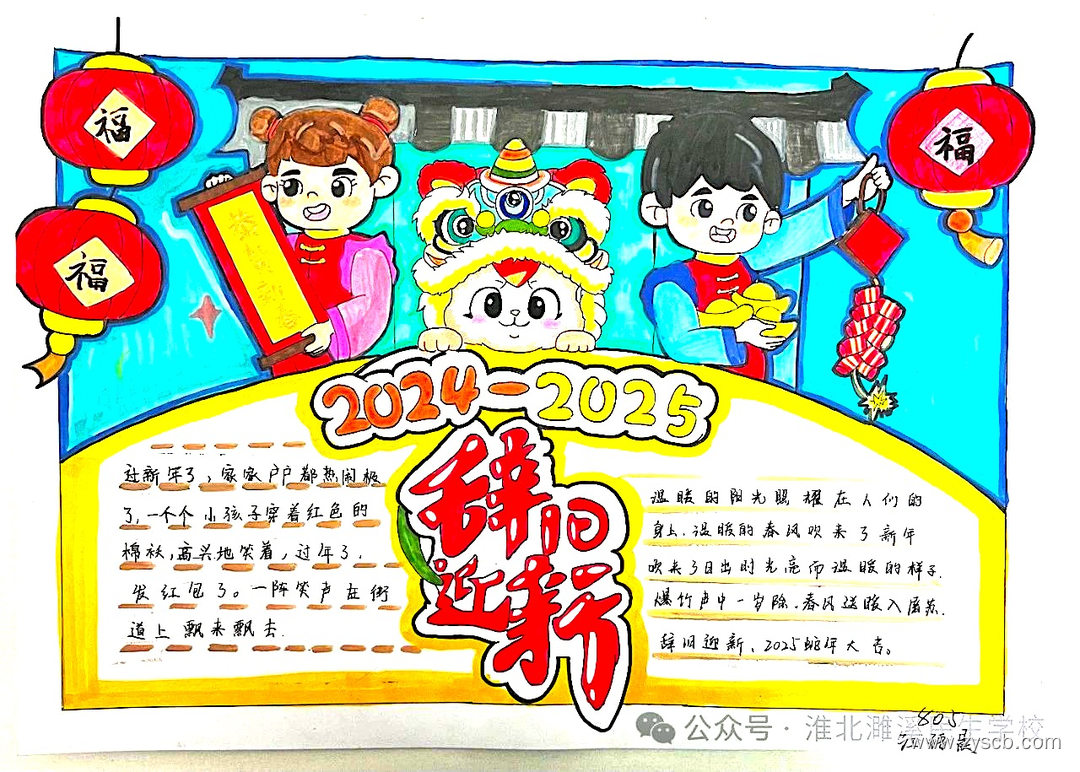 福
福
福
2024-2025
辞旧
迎新
过新年了，家家户户都热闹极
了，一个个小孩子穿着红色的
棉袄，高兴地笑着，过年了，
发红包了。一阵笑声在街
道上飘来飘去.
温暖的阳光照耀在人们的
身上.温暖的春风吹来了新年
吹来了日出时光亮而温暖的样子.
爆竹声中一岁除.春风送暖入屠苏.
辞旧迎新、2025蛇年大吉。
公众号·淮北濉溪 生学校
805
www. yscb.com